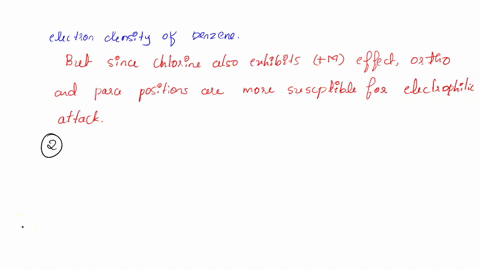 electron density of benzene.
But since chlorine also exhibits (+M) effect, ortho
and para positions are more susceptible for electrophilic
attack.
2